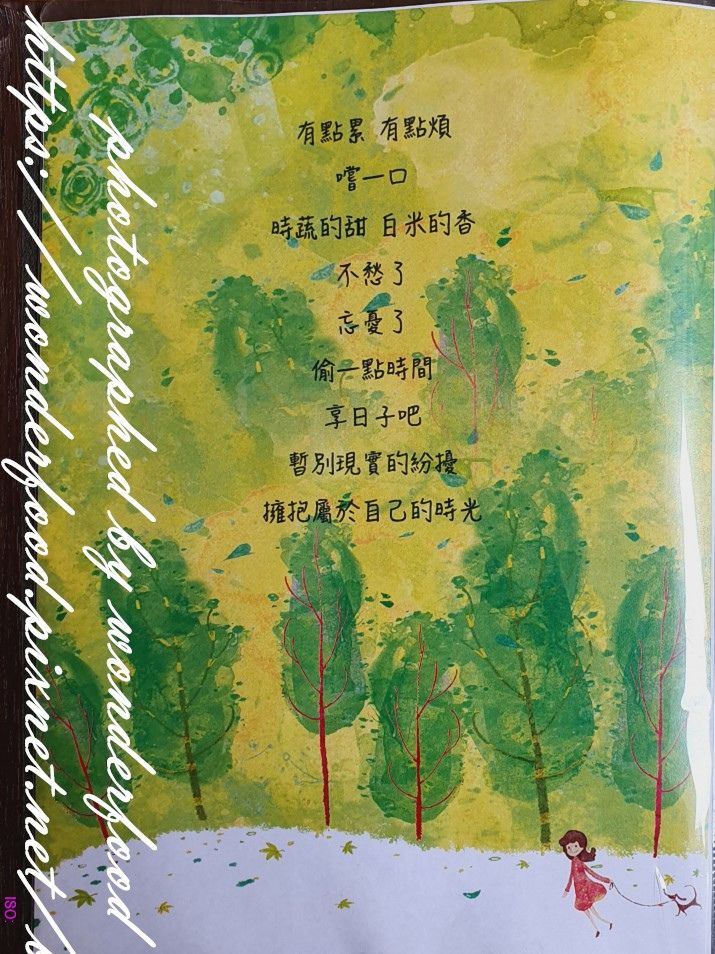 有點累 有點煩
嚐一口
時蔬的甜 白米的香
不愁了
忘憂了
偷一點時間
享日子吧
暫別現實的紛擾
擁抱屬於自己的時光
photographed by wonderfood
https://wonderfood.pixnet.net/
ISO: